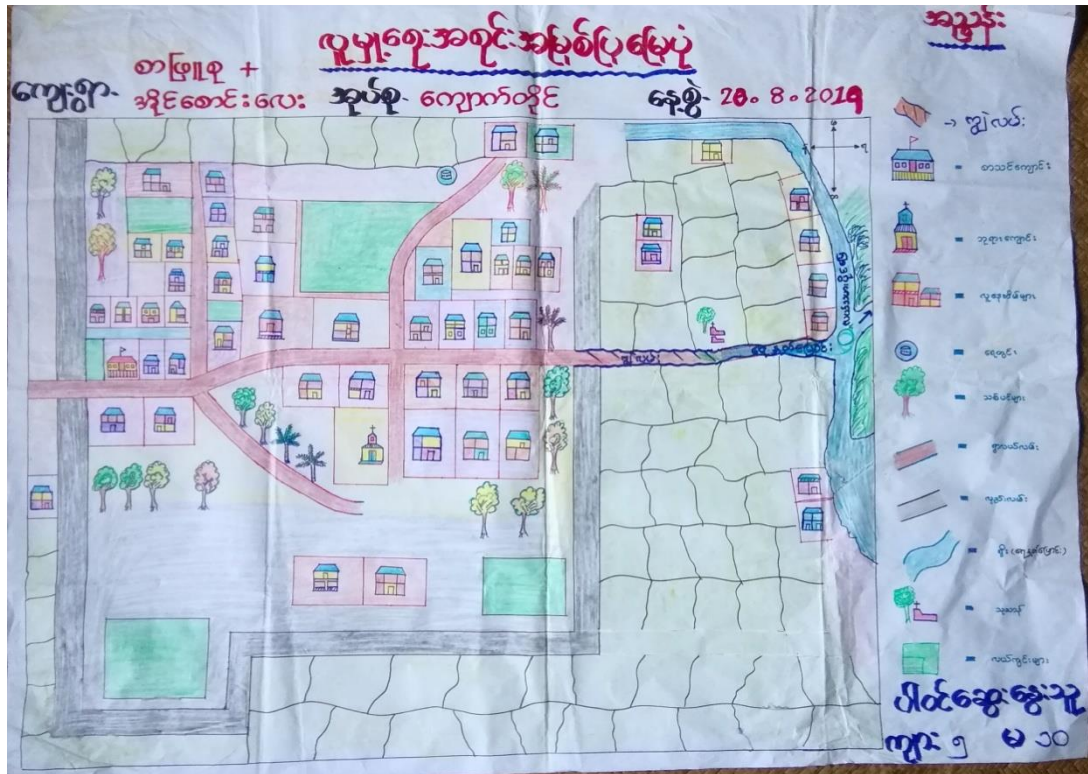 လူမှုရေးအရင်းအမြစ်ပြမြေပုံ
ကျေးရွာ- စာဖြူစု + အိုင်စောင်းလေး အုပ်စု- ကျောက်တိုင် နေ့စွဲ- 20.8.2019
အညွှန်း
→ ကျွဲလမ်း
စာသင်ကျောင်း
ဘုရားကျောင်း
လူနေအိမ်များ
ရေတွင်း
သစ်ပင်များ
ရွာလယ်လမ်း
လှည်းလမ်း
သုသာန်
လယ်ကွင်းများ
ကျွဲလမ်း
ပါဝင်ဆွေးနွေးသူ
ကျား ၅ မ ၁၀